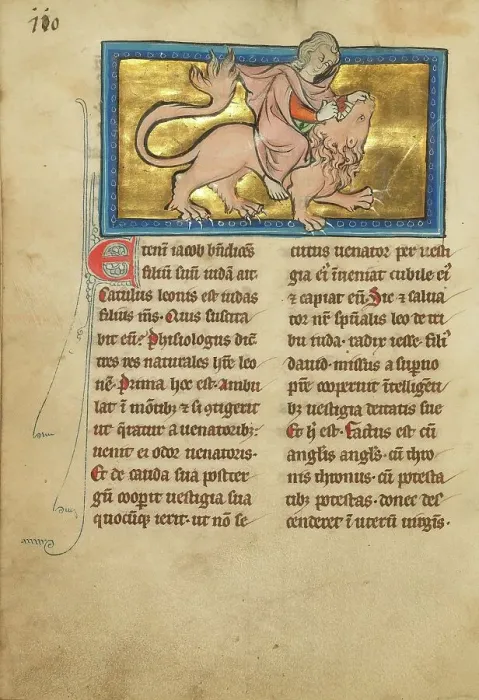 Etenī iacob bn̄dicēs
filiū suū iudā ait
Catulus leonis est iudas
filius mīs. Quis suscita
bit eū? Phisiologus dic̄
tres res naturales hr̄e leo
nē. Prima hec est. Ambu
lat ī mōtibꝫ ⁊ si ꝯtigerit
ut q̄ratur a uenatoribꝫ:
uenit ei odor uenatoris.
Et de cauda sua poster
gū cooꝑit uestigia sua
quocūqꝫ ierit. ut nō se
cutus uenator per uesti
gia eiꝰ īueniat cubile eiꝰ
⁊ capiat eū. Sic ⁊ salua
tor nr̄ spūalis leo de tri
bu iuda. radix iesse. filiꝰ
dauid. missus a suꝑno
pr̄e cooperuit ītelligēti
bꝫ uestigia deitatis sue
Et h̄ est. Factus est cū
angl̄is angl̄s. cū thro
nis thronus. cū potesta
tibꝫ potestas. donec des
cenderet ī uterū uirgīs.